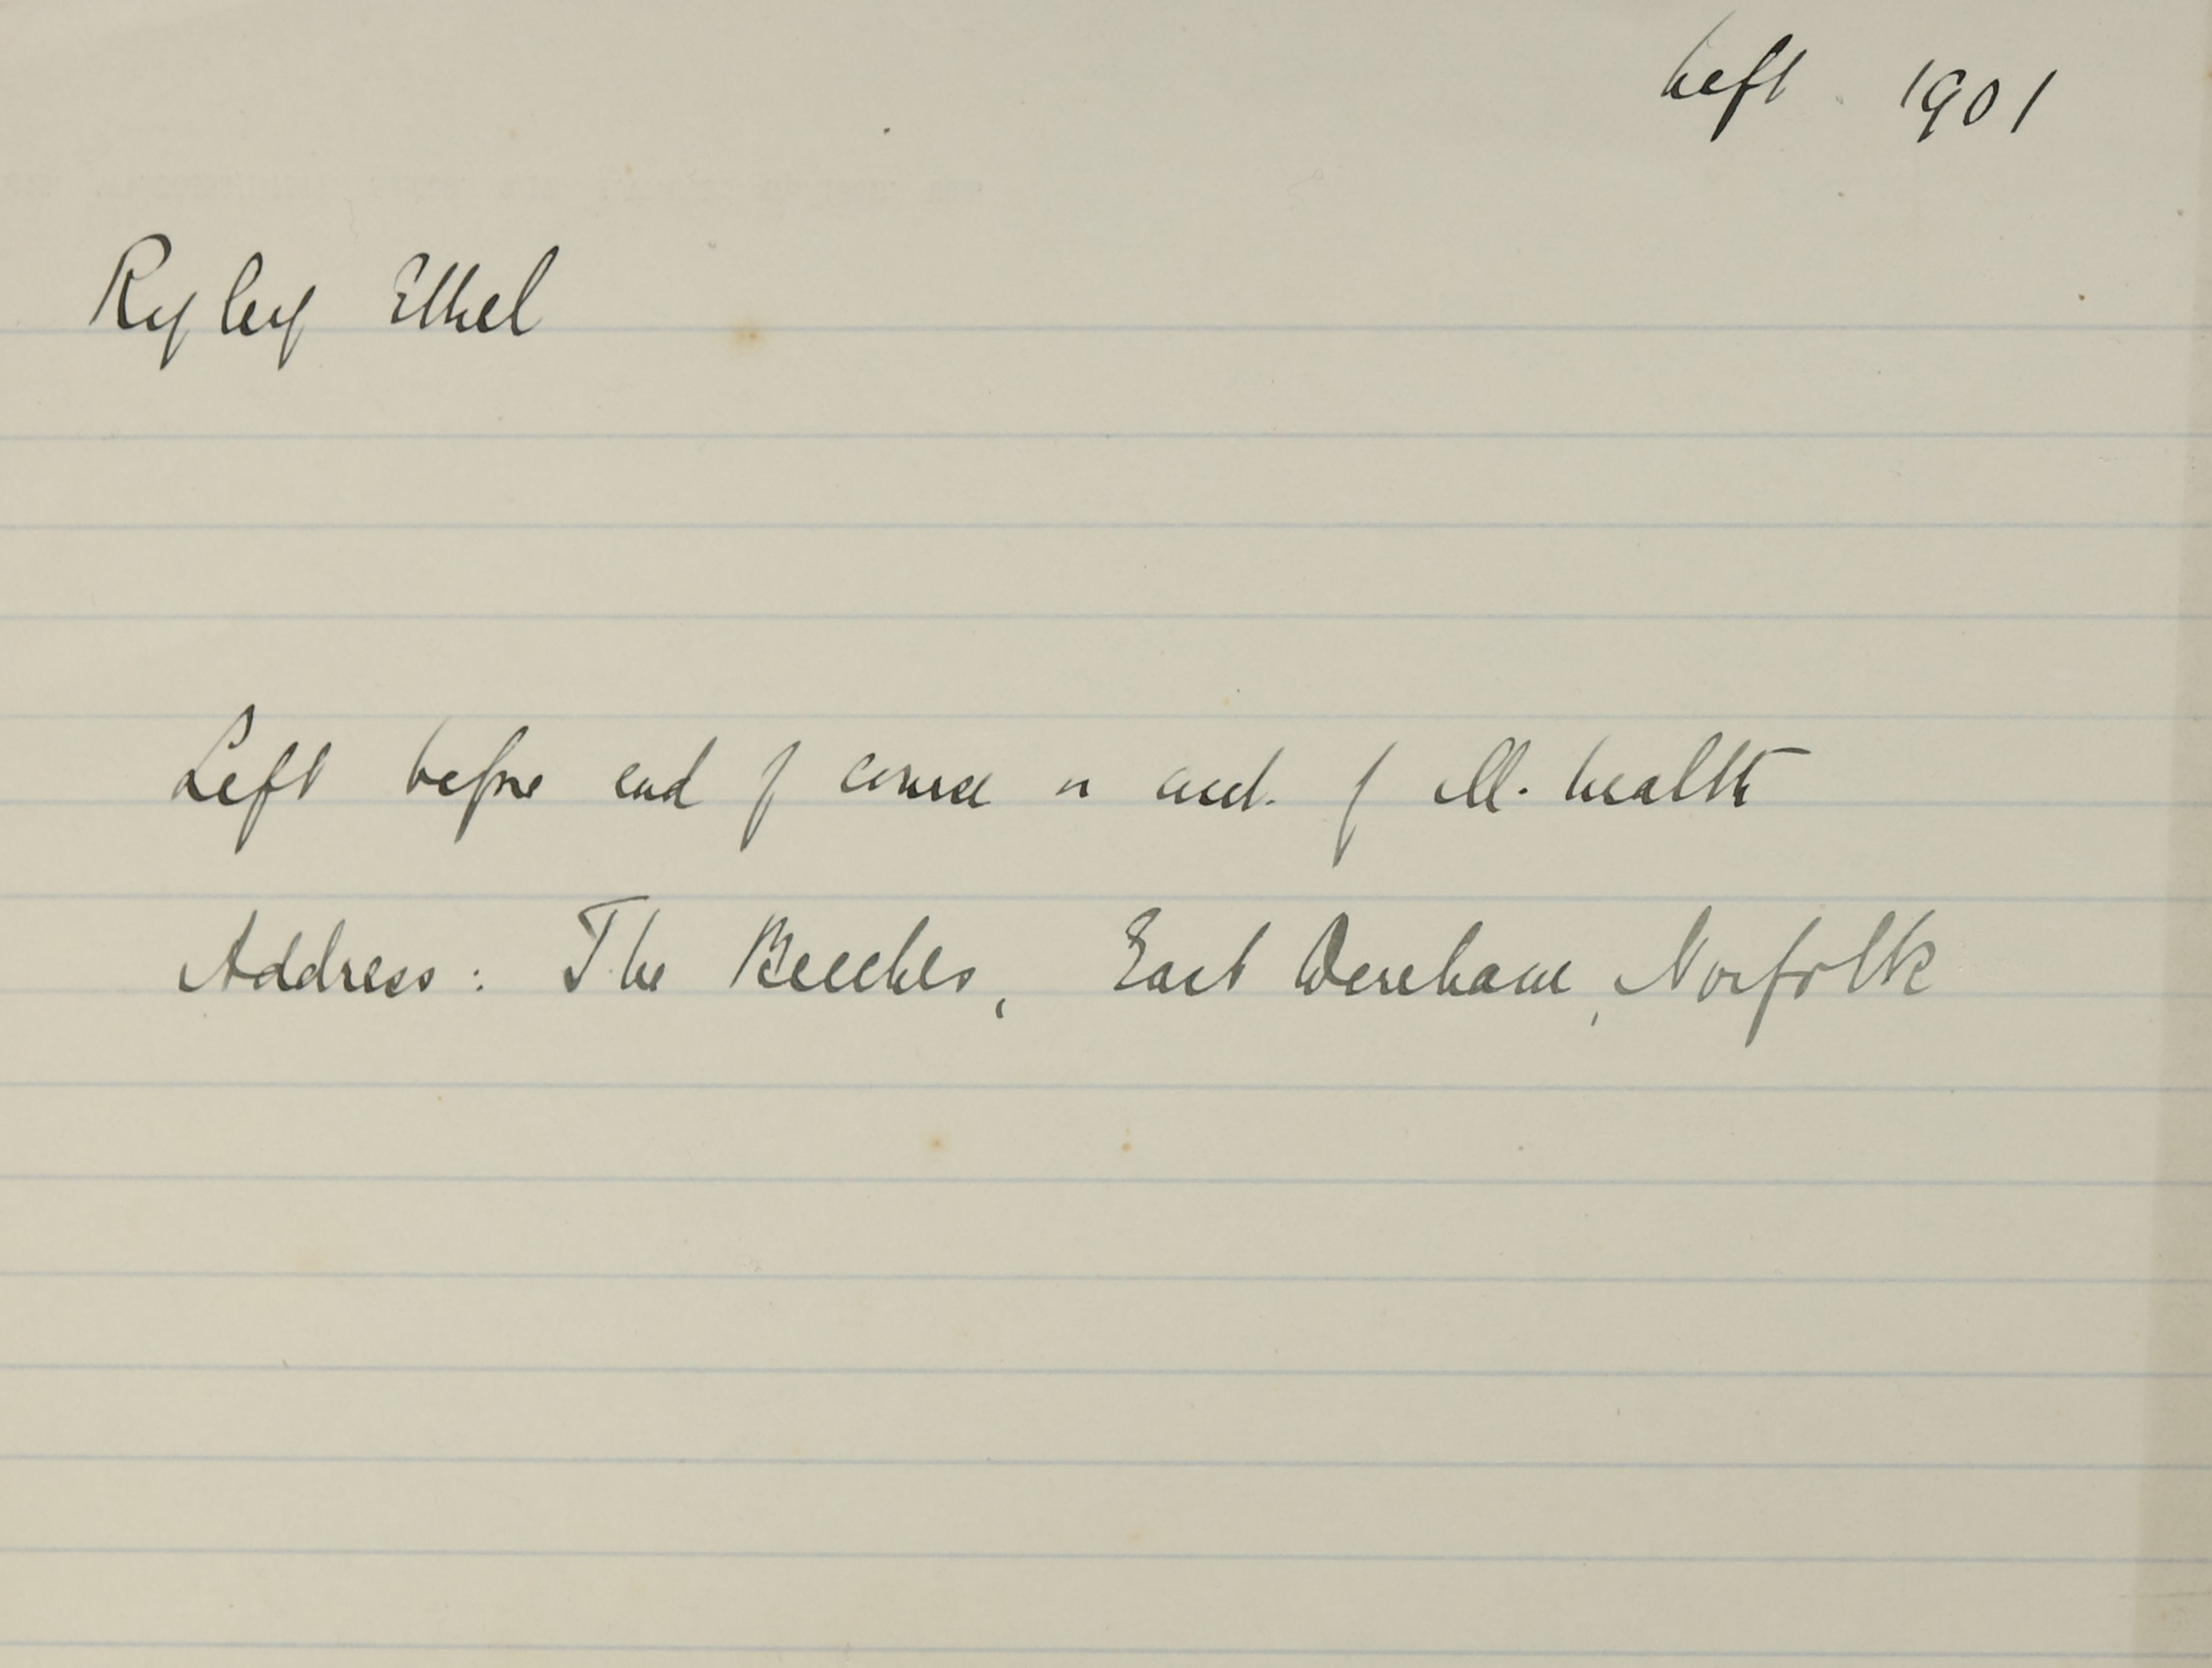 Left 1901
Ryley Ethel
Left before end of course on acct. of ill-health
Address: The Beeches, East Dereham, Norfolk